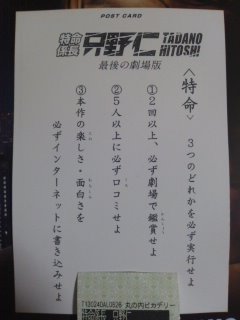 POST CARD
特命係長 只野仁
TADANO HITOSHI
最後の劇場版
〈特命〉
3つのどれかを必ず実行せよ
①2回以上、必ず劇場で鑑賞せよ
②5人以上に必ず口コミせよ
③本作の楽しさ・面白さを
必ずインターネットに書き込みせよ
T130240AL0526 丸の内ピカデリー